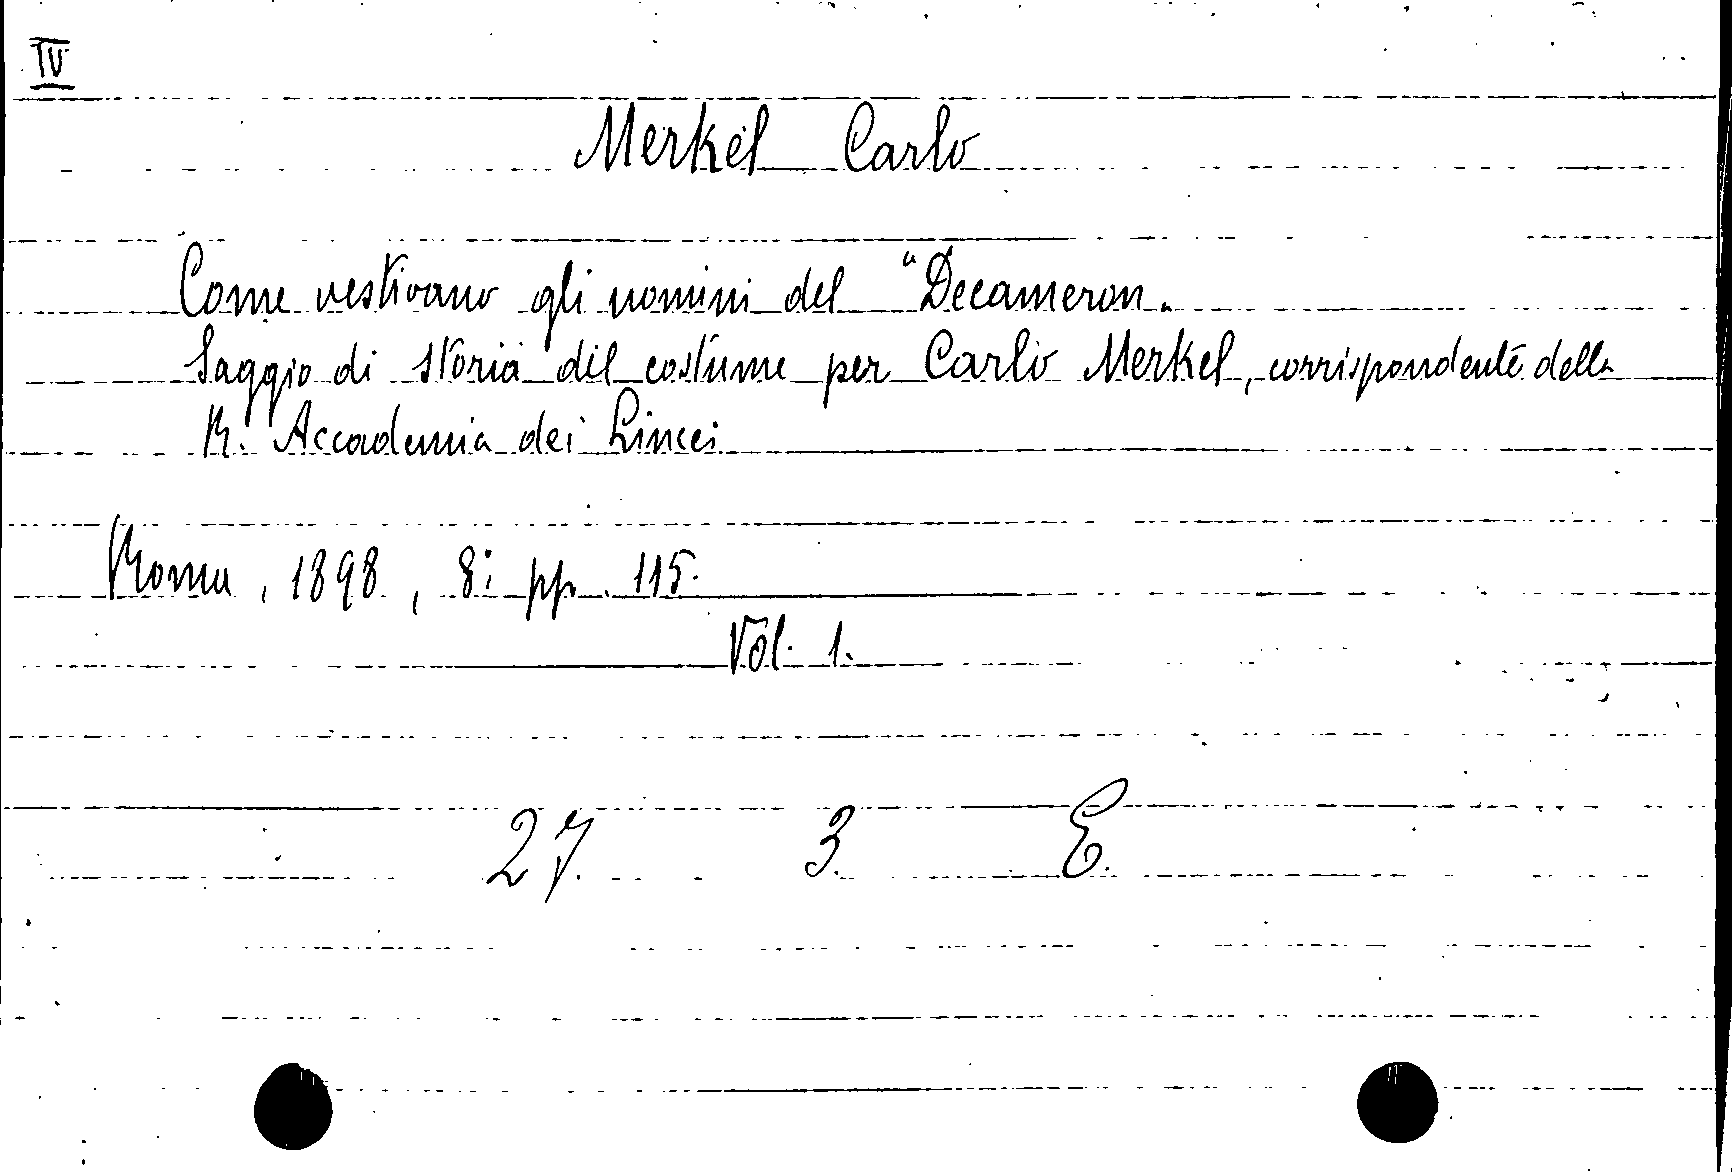 IV
Merkel Carlo
Come vestivano gli uomini del "Decameron.
Saggio di storia del costume per Carlo Merkel, corrispondente della
R. Accademia dei Lincei
Roma, 1898, 8: pp. 115.
Vol. 1.
27. 3. E.